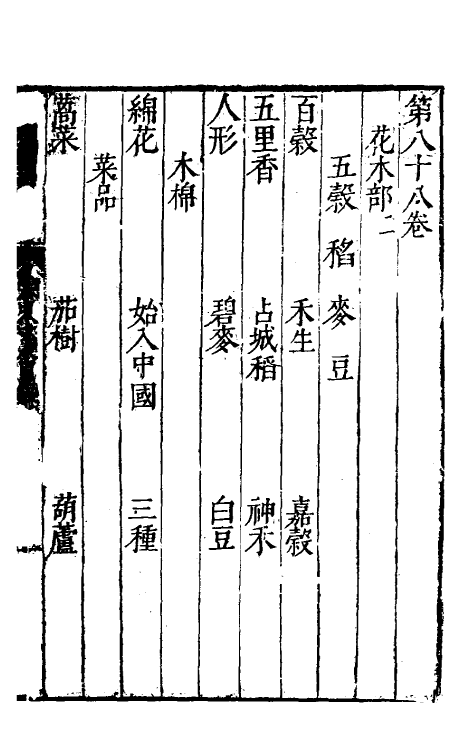 第八十八卷
花木部二
五穀 稻 麥 豆
百穀 禾生 嘉穀
五里香 占城稻 神禾
人形 碧麥 白豆
木棉
綿花 始入中國 三種
菜品
蒿菜 茄樹 葫蘆